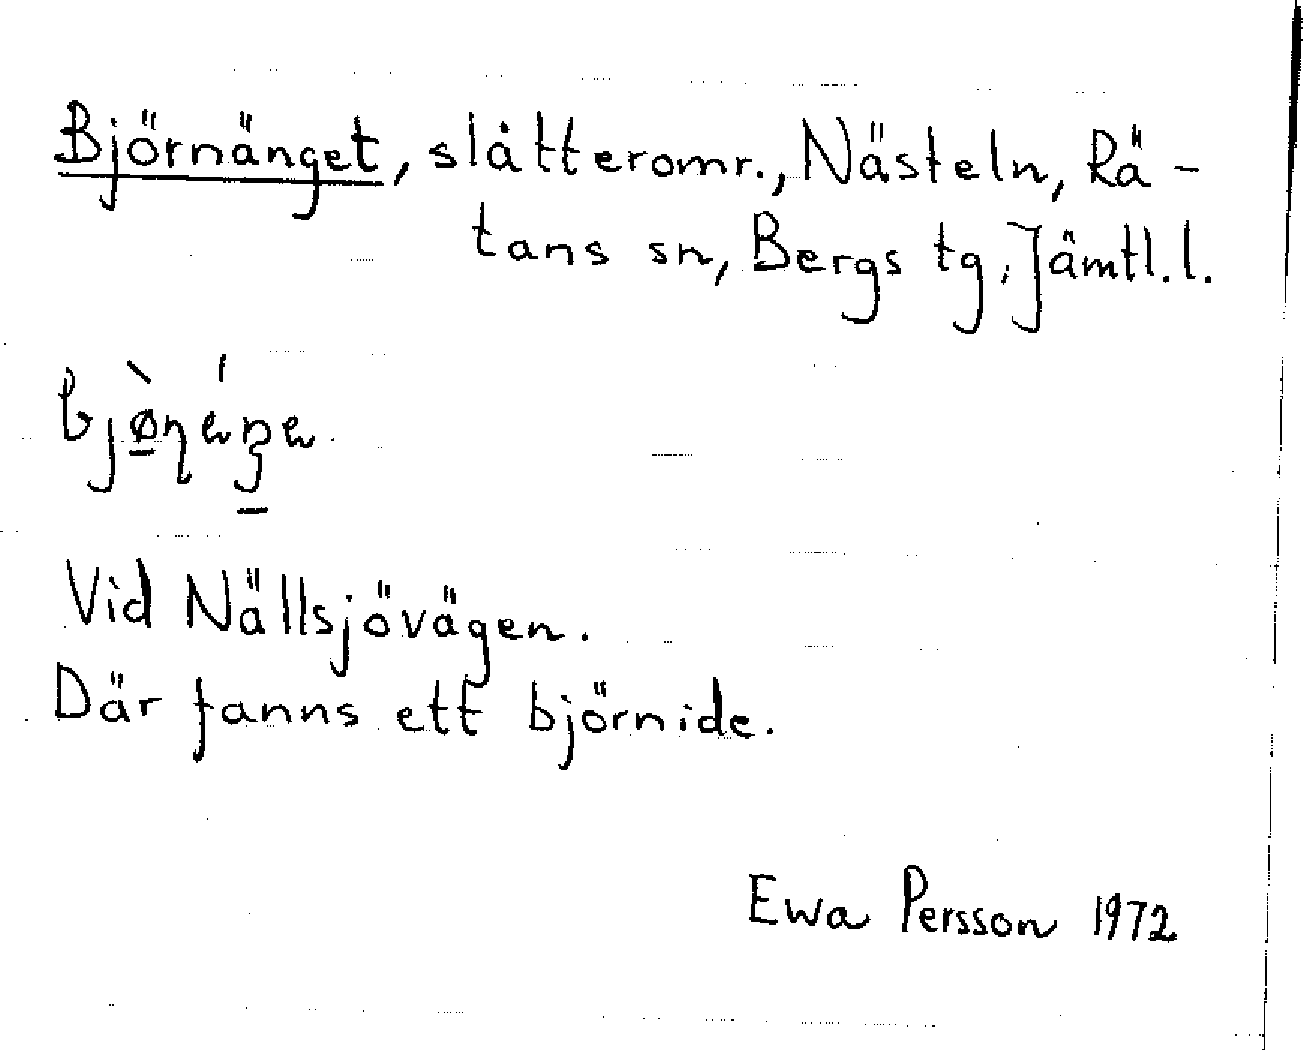 Björnänget, slåtteromr., Nästeln, Rä-
tans sn, Bergs tg, Jämtl.l.
Vid Nällsjövägen.
Där fanns ett björnide.
Ewa Persson 1972